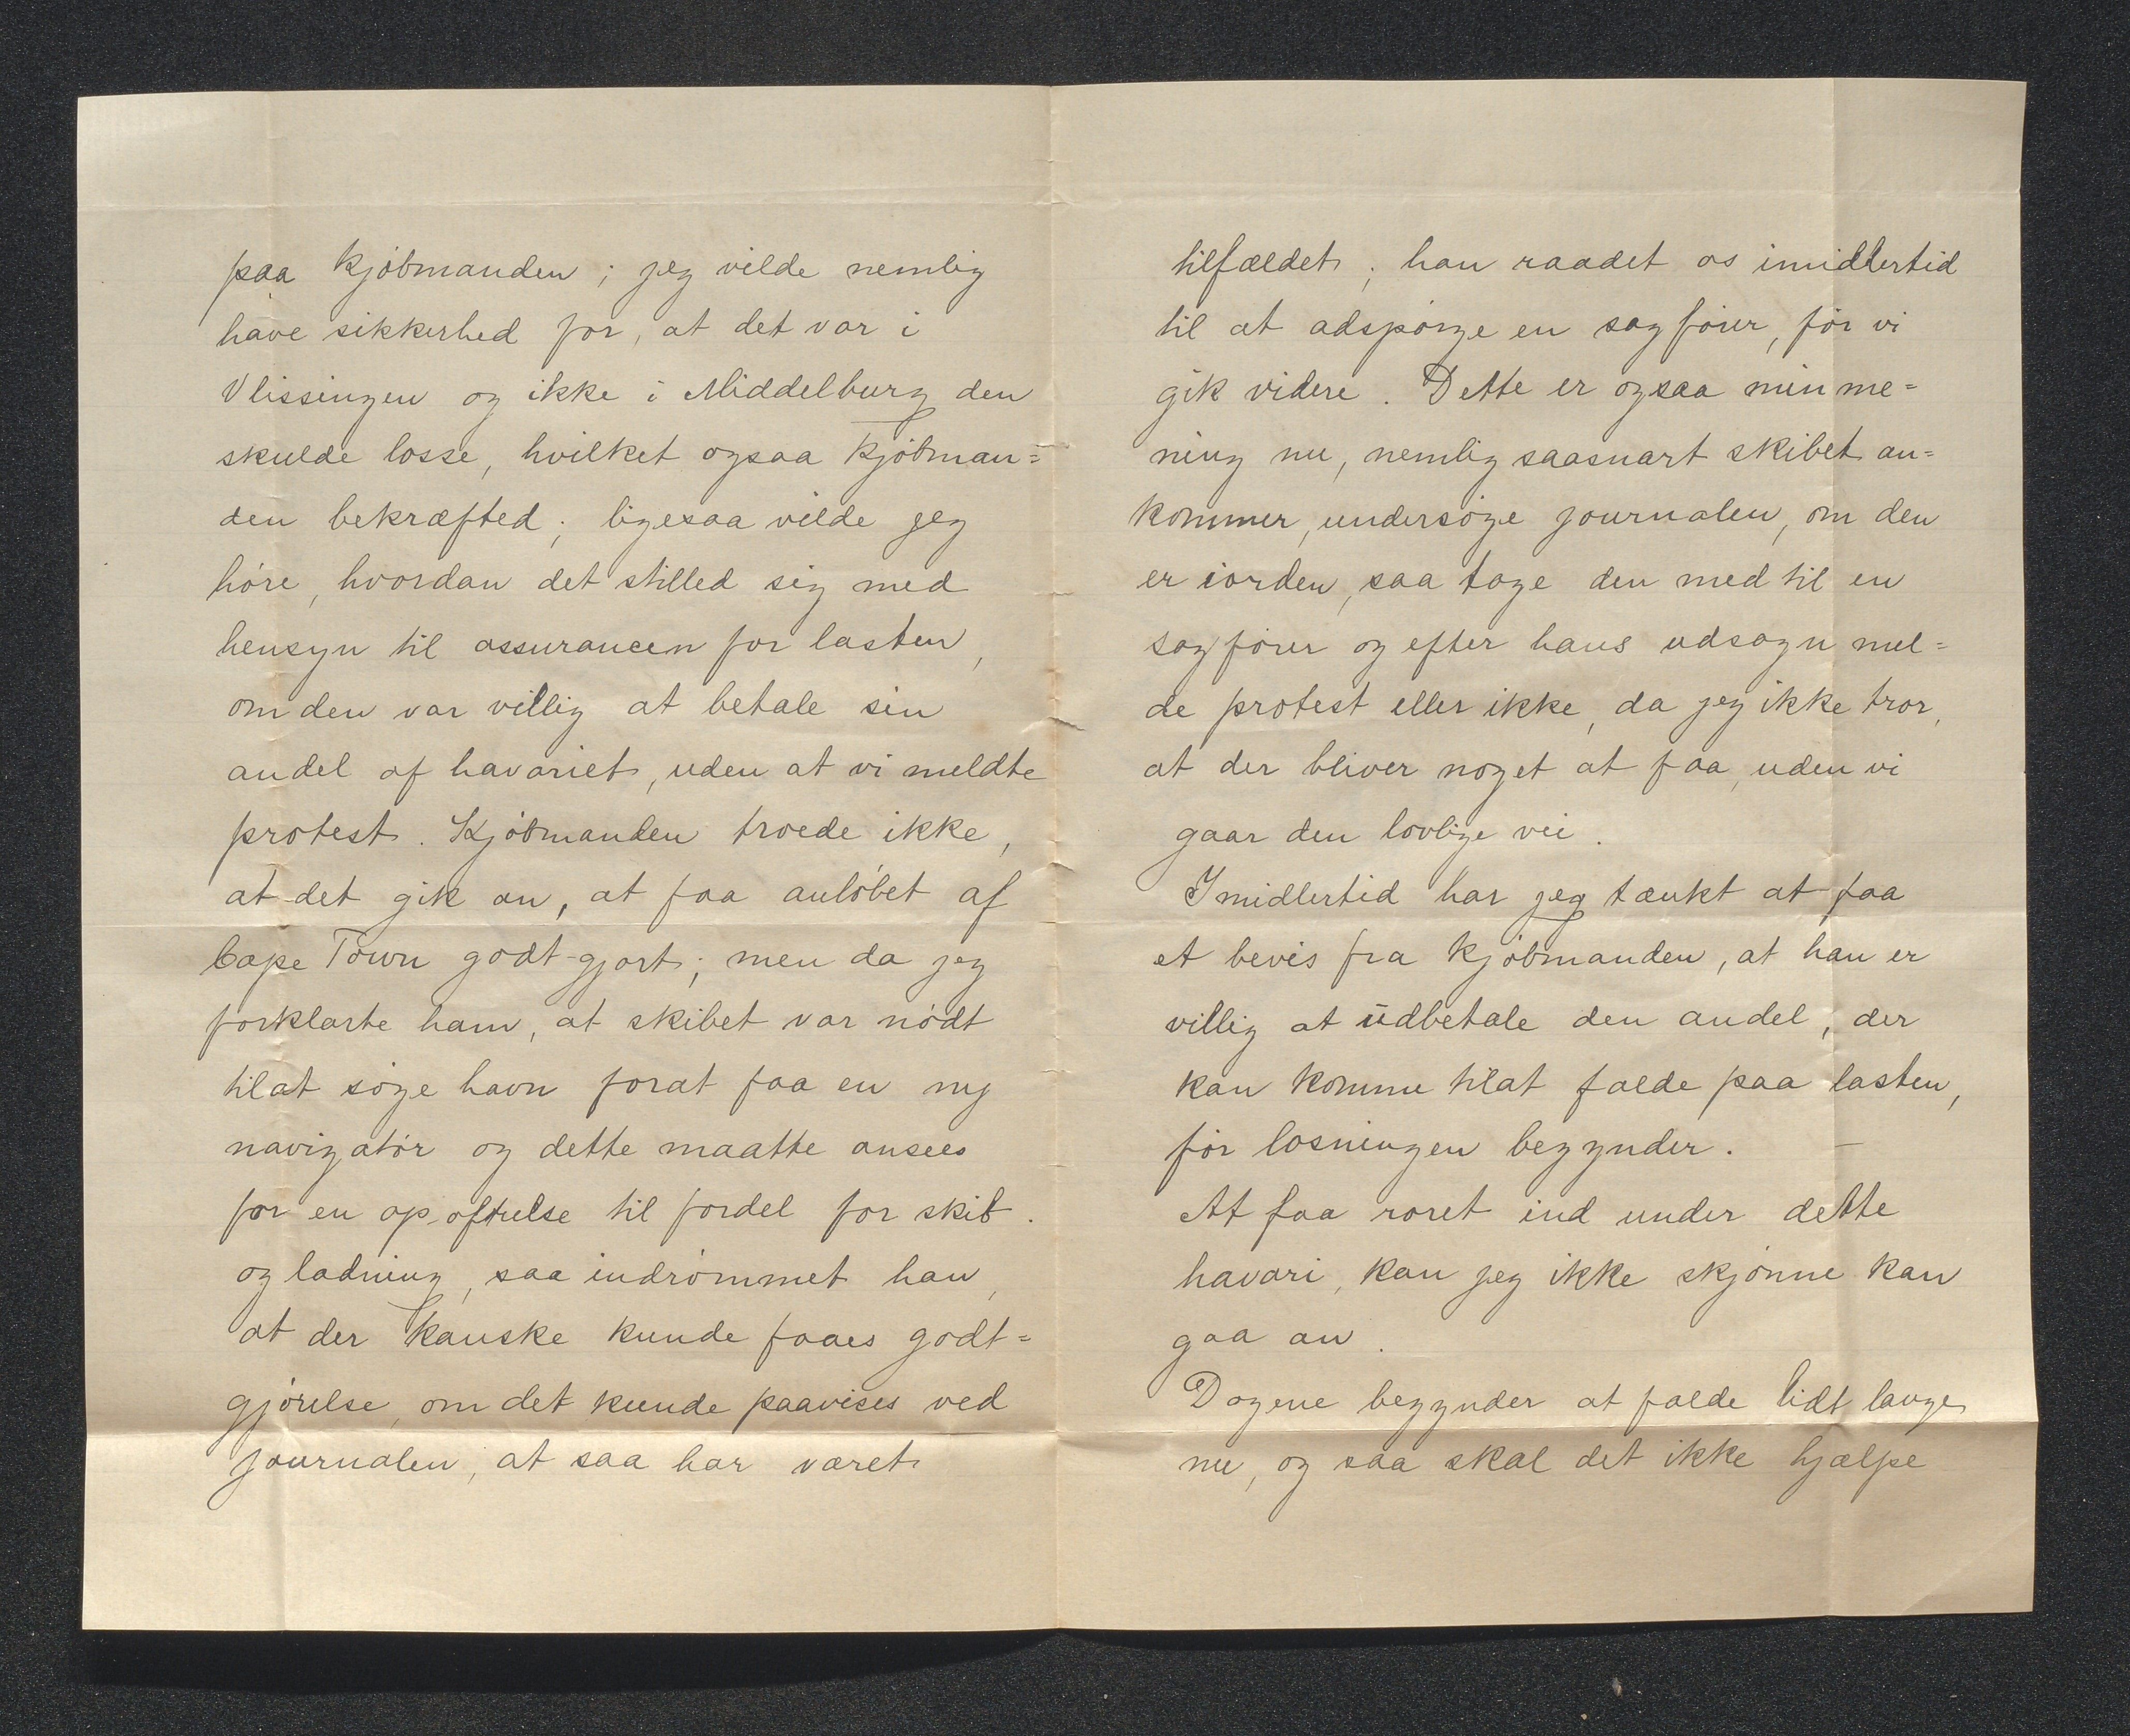 paa kjøbmanden; jeg vilde nemlig
have sikkerhed for, at det var i
Vlissingen og ikke i Middelburg den
skulde losse, hvilket ogsaa kjøbman=
den bekræfted; ligesaa vilde jeg
høre, hvordan det stilled sig med
hensyn til assurancen for lasten,
om den var villig at betale sin
andel af havariet, uden at vi meldte
protest. Kjøbmanden troede ikke,
at det gik an, at faa anløbet af
Cape Town godt-gjort; men da jeg
forklarte ham, at skibet var nødt
tilat søge havn forat faa en ny
navigatør og dette maatte ansees
for en opoftrelse til fordel for skib.
og ladning, saa indrømmet han,
at der kanske kunde faaes godt=
gjørelse, om det kunde paavises ved
journalen, at saa har været
tilfældet; han raadet os imidlertid
til at adspørge en sagfører, før vi
gik videre. Dette er ogsaa min me=
ning nu, nemlig saasnart skibet an=
kommer, undersøge journalen, om den
er iorden, saa tage den med til en
sagfører og efter hans udsagn mel=
de protest eller ikke, da jeg ikke tror,
at der bliver noget at faa, uden vi
gaar den lovlige vei.
Imidlertid har jeg tænkt at faa
et bevis fra kjøbmanden, at han er
villig at udbetale den andel, der
kan komme tilat falde paa lasten,
før losningen begynder. —
At faa roret ind under dette
havari, kan jeg ikke skjønne kan
gaa an.
Dagene begynder at falde lidt lange
nu, og saa skal det ikke hjælpe